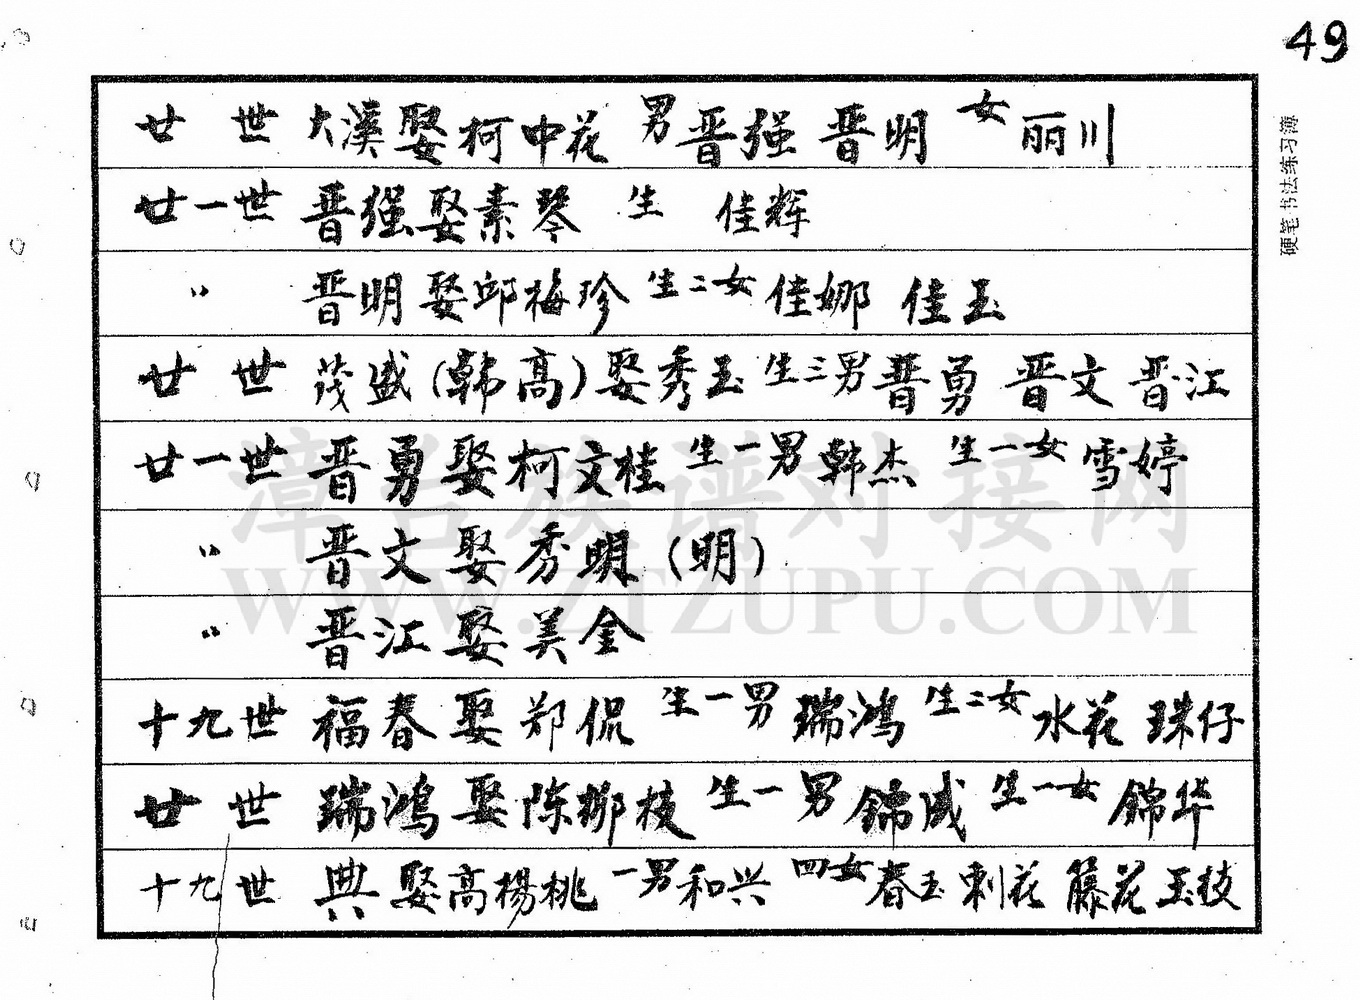 49
硬笔书法练习薄
廿世 大溪娶柯中花 男晋强 晋明 女丽川
廿一世 晋强娶素琴 生 佳辉
〃 晋明娶邱梅珍 生二女佳娜 佳玉
廿世 茂盛(韩高)娶秀玉 生三男晋勇 晋文 晋江
廿一世 晋勇娶柯文桂 生一男韩杰 生一女雪婷
〃 晋文娶秀明(明)
〃 晋江娶美金
十九世 福春娶郑侃 生一男瑞鸿 生二女水花 珠仔
廿世 瑞鸿娶陈柳枝 生一男锦成 生一女锦华
十九世 典娶高楊桃 一男和兴 四女春玉 刺花 籐花 玉枝
漳台族谱对接网
WWW.ZTZUPU.COM